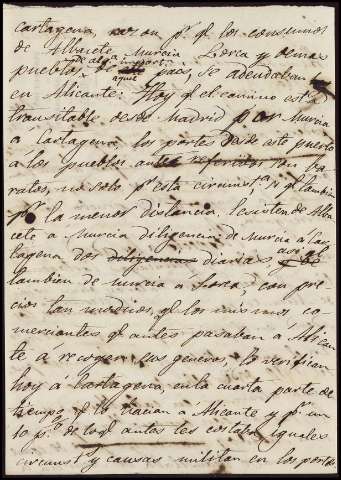 Cartagena, razon pr. ql. los consumos
de Albacete Murcia Lorca y demas
pueblos de alga. import.
de aquel pais, se adeudaban
en Alicante: Hoy ql. el camino está
transitable desde Madrid por Murcia
á Cartagena, los portes desde este puerto
á los pueblos antes referidos son ba
ratos, no solo pr. esta circunsta. si ql. tambien
pr. la menor distancia, existen de Alba
cete a Murcia diligencias, de Murcia a Car
tagena dos diligencias diarias asi ql.
tambien de Murcia á Lorca, con pre
cios tan modicos, ql. los mismos co
merciantes ql. antes pasaban á Alican
te a recoger sus generos lo verifican
hoy á Cartagena, en la cuarta parte de
tiempo ql. lo hacian a Alicante y pr. un
10 p% de lo ql. antes les costaba iguales
circunsts. y causas militan en los portes